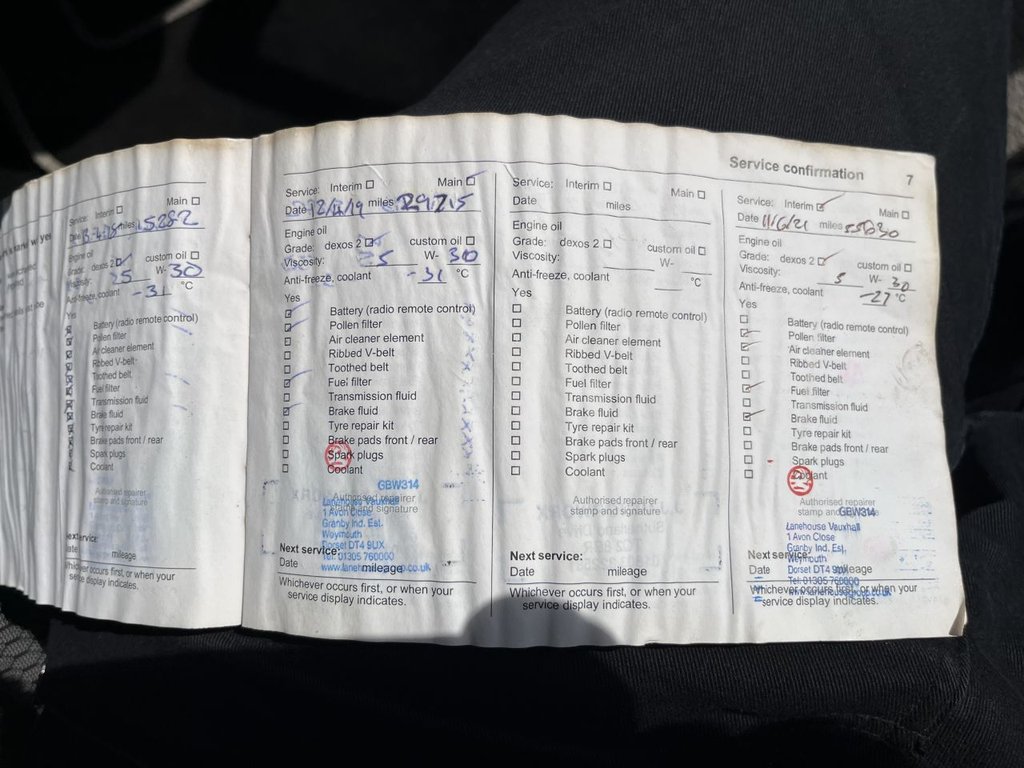 Service confirmation 7
Service: Interim ☐ Main ☐
miles 15282
Engine oil
Grade: dexos 2 ☑ custom oil ☐
Viscosity: W- 30
Anti-freeze, coolant -31 °C
Yes
Battery (radio remote control)
Pollen filter
Air cleaner element
Ribbed V-belt
Toothed belt
Fuel filter
Transmission fluid
Brake fluid
Tyre repair kit
Brake pads front / rear
Spark plugs
Coolant
Authorised repairer
stamp and signature
Next service:
Date mileage
Whichever occurs first, or when your
service display indicates.
Service: Interim ☐ Main ☑
Date miles 29715
Engine oil
Grade: dexos 2 ☑ custom oil ☐
Viscosity: 5 W- 30
Anti-freeze, coolant -31 °C
Yes
Battery (radio remote control)
Pollen filter
Air cleaner element
Ribbed V-belt
Toothed belt
Fuel filter
Transmission fluid
Brake fluid
Tyre repair kit
Brake pads front / rear
Spark plugs
Coolant
GBW314
Authorised repairer
stamp and signature
Lanehouse Vauxhall
1 Avon Close
Granby Ind. Est.
Weymouth
Dorset DT4 9UX
Tel: 01305 760000
Next service:
Date mileage
Whichever occurs first, or when your
service display indicates.
Service: Interim ☐ Main ☐
Date miles
Engine oil
Grade: dexos 2 ☐ custom oil ☐
Viscosity: W-
Anti-freeze, coolant °C
Yes
Battery (radio remote control)
Pollen filter
Air cleaner element
Ribbed V-belt
Toothed belt
Fuel filter
Transmission fluid
Brake fluid
Tyre repair kit
Brake pads front / rear
Spark plugs
Coolant
Authorised repairer
stamp and signature
Next service:
Date mileage
Whichever occurs first, or when your
service display indicates.
Service: Interim ☑ Main ☐
Date 11/6/21 miles
Engine oil
Grade: dexos 2 ☑ custom oil ☐
Viscosity: 5 W- 30
Anti-freeze, coolant -27 °C
Yes
Battery (radio remote control)
Pollen filter
Air cleaner element
Ribbed V-belt
Toothed belt
Fuel filter
Transmission fluid
Brake fluid
Tyre repair kit
Brake pads front / rear
Spark plugs
Coolant
Authorised repairer
stamp and GBW314
Lanehouse Vauxhall
1 Avon Close
Granby Ind. Est.
Weymouth
Dorset DT4 9UX
Tel: 01305 760000
Next service:
Date mileage
Whichever occurs first, or when your
service display indicates.